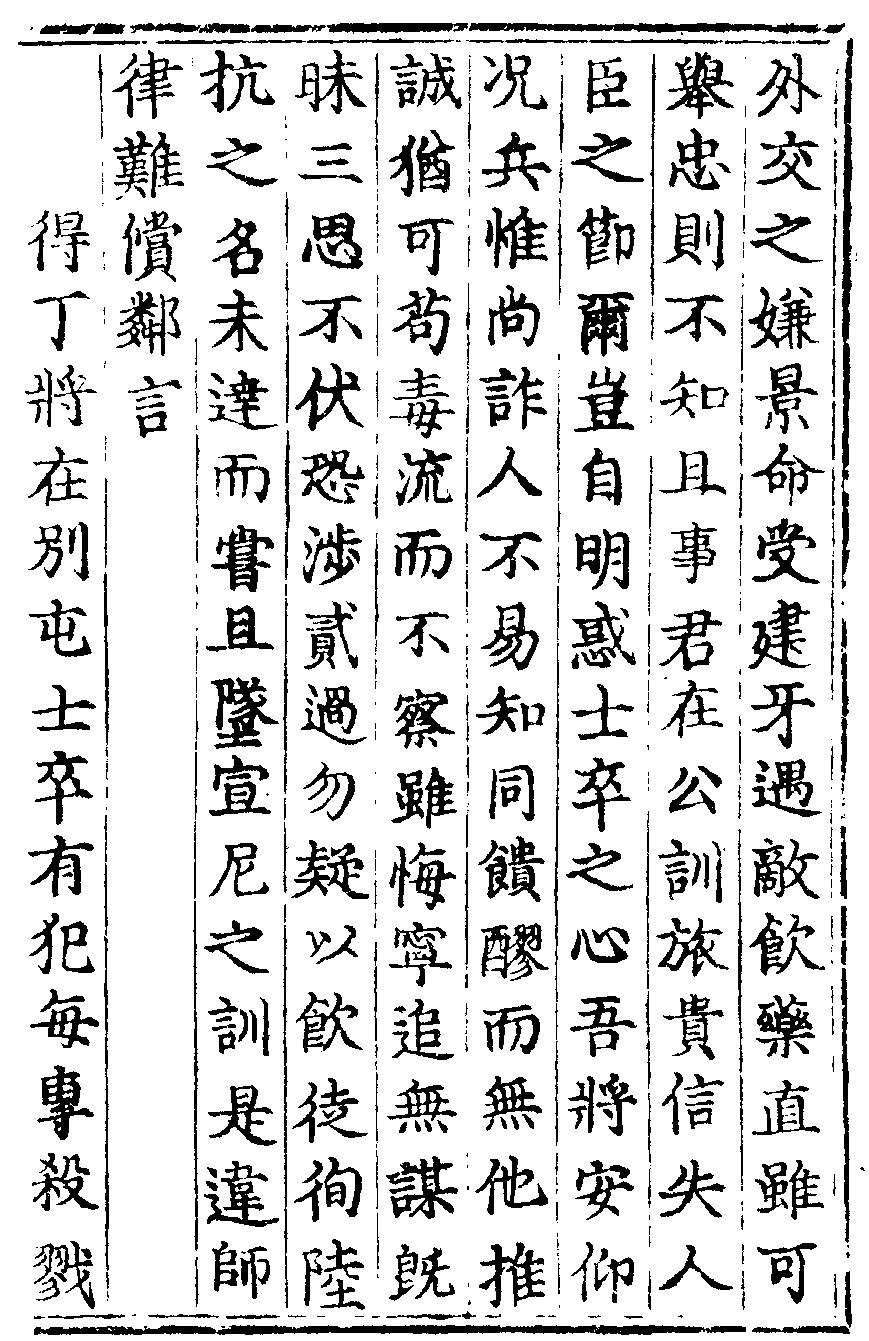 外交之嫌景命受建牙遇敵飲藥直雖可
舉忠則不知且事君在公訓旅貴信失人
臣之節爾豈自明惑士卒之心吾將安仰
况兵惟尚詐人不易知同饋醪而無他推
誠猶可苟毒流而不察雖悔寧追無謀旣
昧三思不伏恐涉貳過勿疑以飲徒徇陸
抗之名未達而嘗且墜宣尼之訓是違師
律難償鄰言
得丁將在別屯士卒有犯每專殺戮